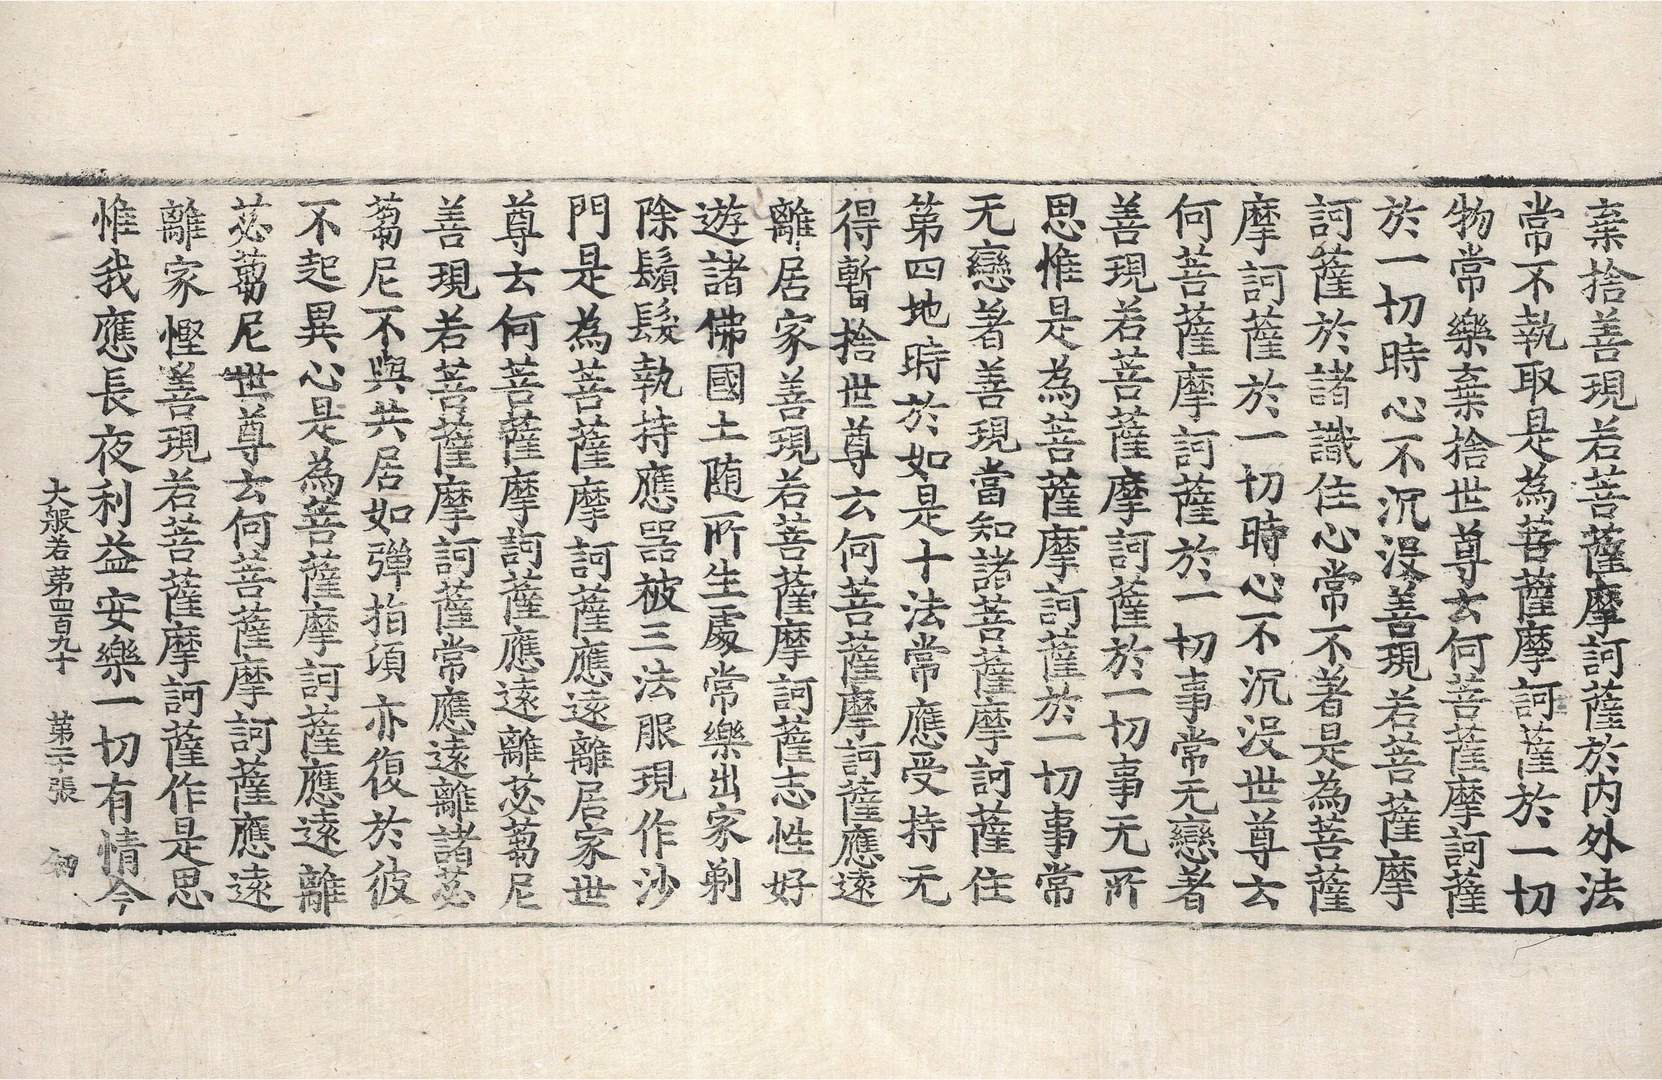 棄捨善現若菩薩摩訶薩於內外法
常不執取是為菩薩摩訶薩於一切
物常樂棄捨世尊云何菩薩摩訶薩
於一切時心不沉沒善現若菩薩摩
訶薩於諸識住心常不著是為菩薩
摩訶薩於一切時心不沉沒世尊云
何菩薩摩訶薩於一切事常无戀著
善現若菩薩摩訶薩於一切事无所
思惟是為菩薩摩訶薩於一切事常
无戀著善現當知諸菩薩摩訶薩住
第四地時於如是十法常應受持无
得暫捨世尊云何菩薩摩訶薩應遠
離居家善現若菩薩摩訶薩志性好
遊諸佛國土随所生處常樂出家剃
除鬚髮執持應器被三法服現作沙
門是為菩薩摩訶薩應遠離居家世
尊云何菩薩摩訶薩應遠離苾蒭尼
善現若菩薩摩訶薩常應遠離諸苾
蒭尼不與共居如彈指頃亦復於彼
不起異心是為菩薩摩訶薩應遠離
苾蒭尼世尊云何菩薩摩訶薩應遠
離家慳善現若菩薩摩訶薩作是思
惟我應長夜利益安樂一切有情今
大般若第四百九十 第二十張 劒